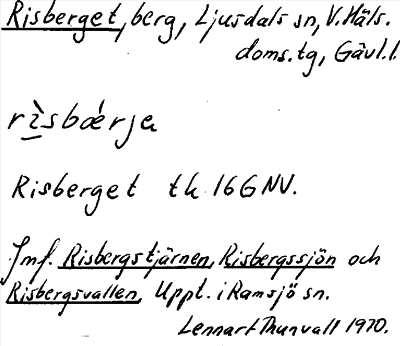 Risberget, berg, Ljusdals sn, V. Häls.
doms.tg, Gävl.l.
rìsbǽrja
Risberget tk 16G NV.
Jmf. Risbergstjärnen, Risbergssjön och
Risbergsvallen, Uppt. i Ramsjö sn.
Lennart Thunvall 1970.